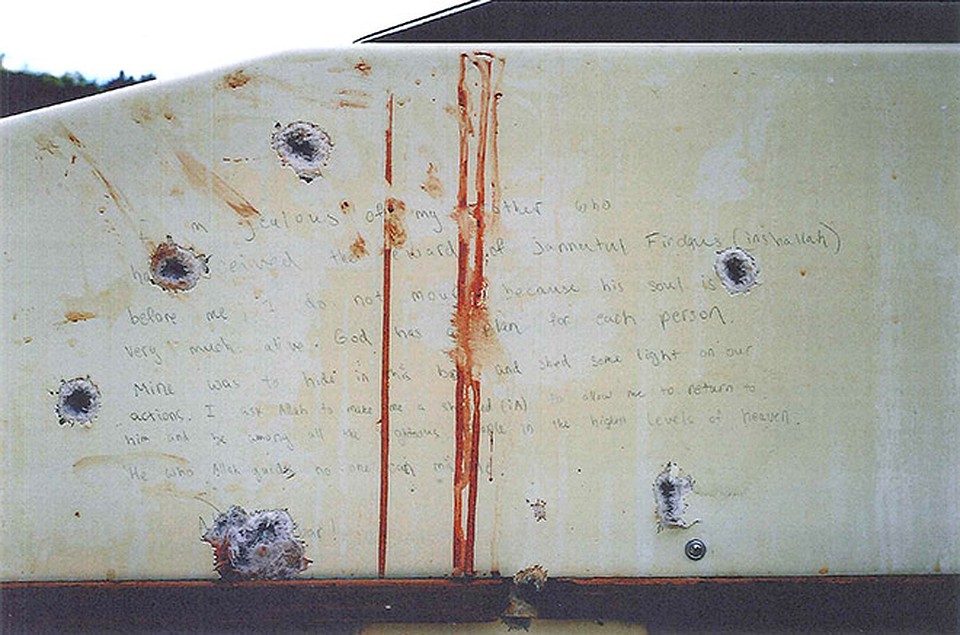 I'm jealous of my brother who
ha ceived the reward of jannutul Firdaus (inshallah)
before me. I do not mourn because his soul is
very much alive. God has a plan for each person.
Mine was to hide in this boat and shed some light on our
actions. I ask Allah to make me a shahied (iA) to allow me to return to
him and be among all the righteous people in the highest levels of heaven.
He who Allah guides no one can misguide.
bar!